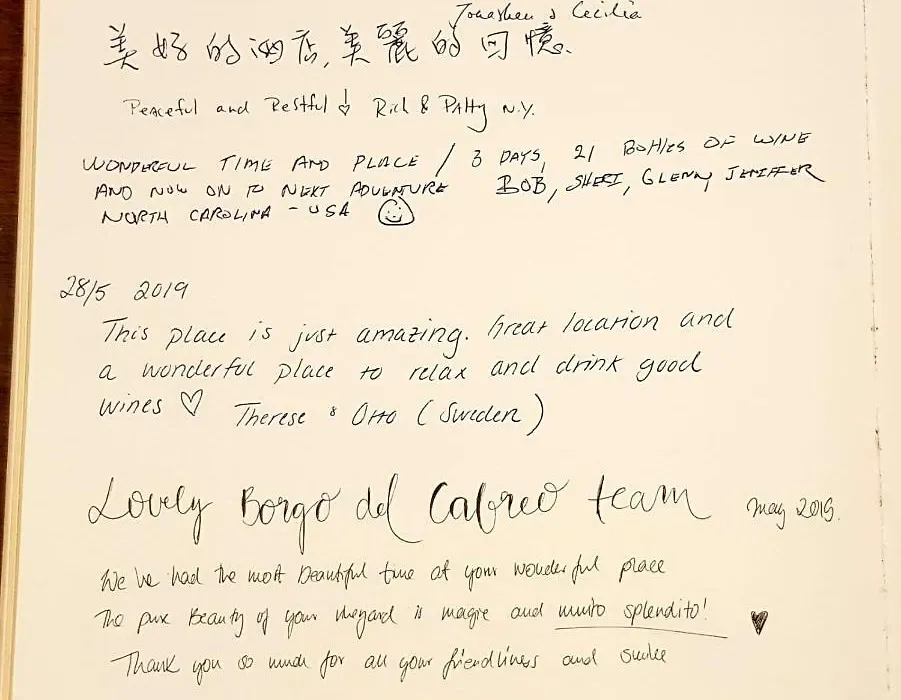 Jonathan & Cecilia
美好的酒店,美麗的回憶.
Peaceful and Restful Rich & Patty N.Y.
WONDERFUL TIME AND PLACE / 3 DAYS, 21 BOTTLES OF WINE
AND NOW ON TO NEXT ADVENTURE BOB, SHERI, GLENN, JENIFFER
NORTH CAROLINA - USA
28/5 2019
This place is just amazing. Great location and
a wonderful place to relax and drink good
wines ♡ Therese & Otto (Sweden)
Lovely Borgo del Cabreo team may 2019.
We've had the most beautiful time at your wonderful place
The pure Beauty of your vineyard is magic and muito splendito! ♥
Thank you so much for all your friendliness and smile